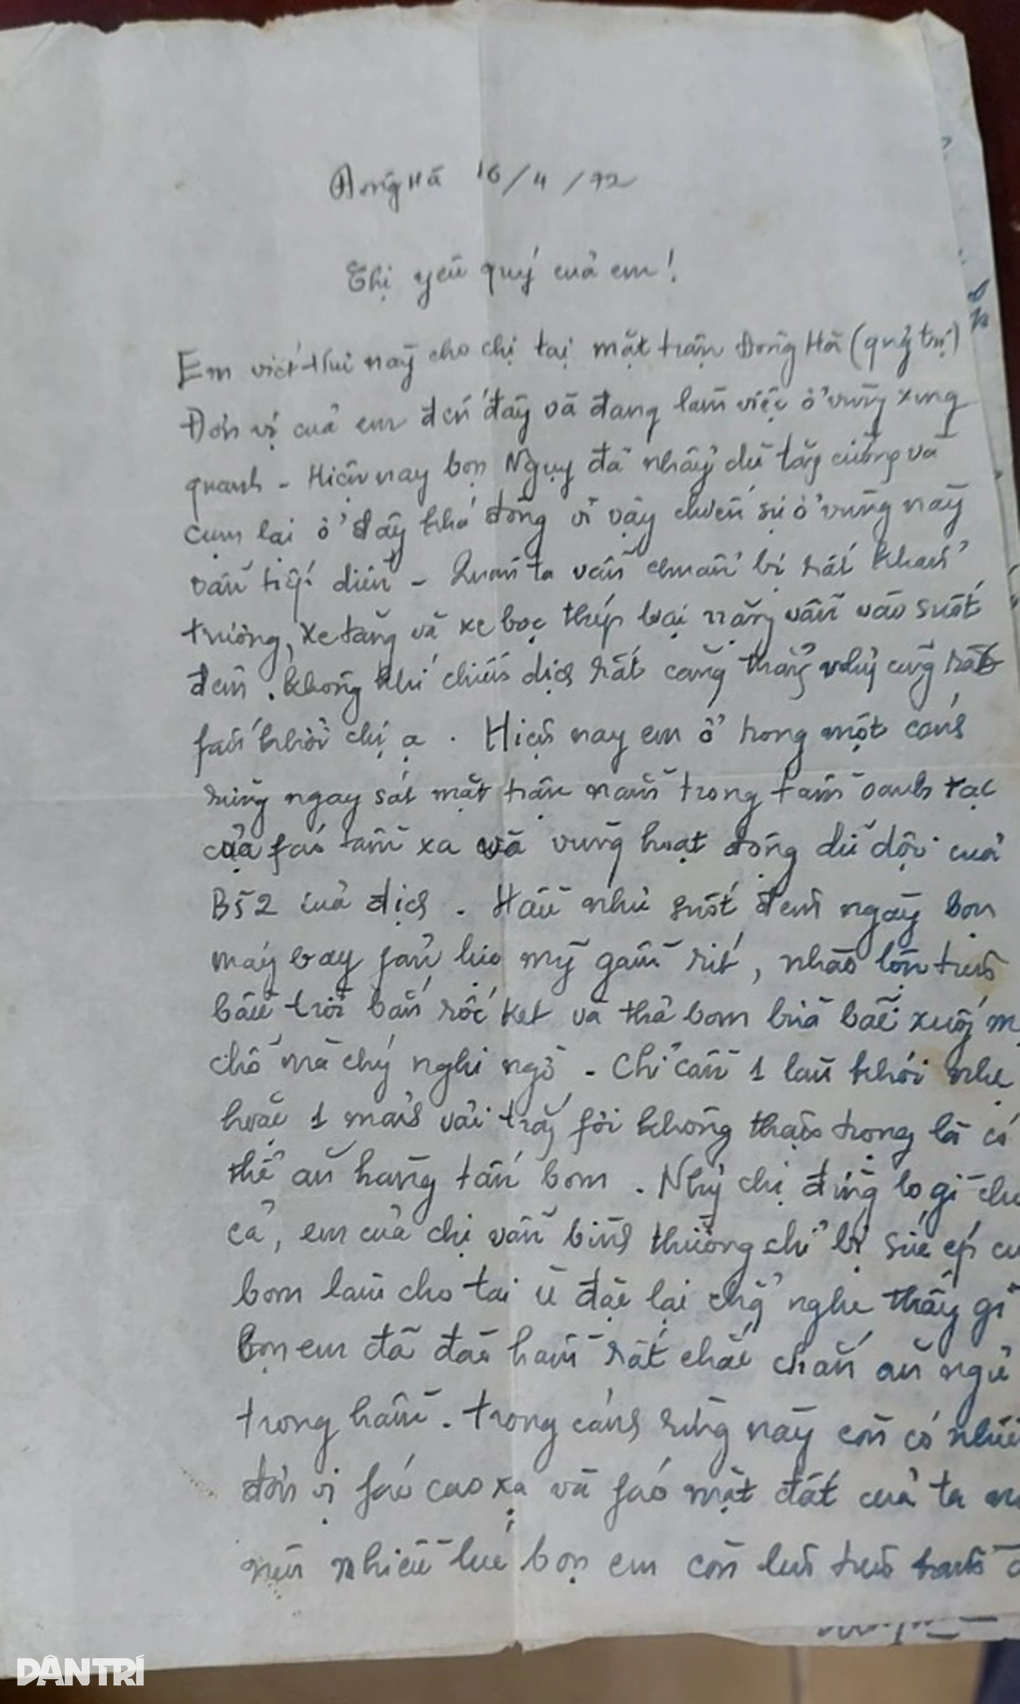 Đông Hà 16/4/72
Chị yêu quý của em!
Em viết thư này cho chị tại mặt trận Đông Hà (quảng trị)
Đơn vị của em đến đây và đang làm việc ở vùng xung
quanh - Hiện nay bọn Ngụy đã nhảy dù tăng cường và
cụm lại ở đây khá đông vì vậy chiến sự ở vùng này
vẫn tiếp diễn - Quân ta vẫn chuẩn bị rất khẩn
trương, xe tăng và xe bọc thép loại nặng vẫn vào suốt
đêm. không khí chiến dịch rất căng thẳng nhưng cũng rất
fấn khởi chị ạ. Hiện nay em ở trong một cánh
rừng ngay sát mặt trận nằm trong tầm oanh tạc
của fáo tầm xa và vùng hoạt động dữ dội của
B52 của địch. Hầu như suốt đêm ngày bọn
máy bay fản lực mỹ gầm rít, nhào lộn trên
bầu trời bắn rốc két và thả bom bừa bãi xuống
chỗ mà chúng nghi ngờ - Chỉ cần 1 làn khói nhẹ
hoặc 1 mảnh vải trắng fơi không thận trọng là có
thể ăn hàng tấn bom. Nhưng chị đừng lo gì
cả, em của chị vẫn bình thường chỉ bị sức ép
bom làm cho tai ù đặc lại chẳng nghe thấy gì
bọn em đã đào hầm rất chắc chắn ăn ngủ
trong hầm. trong cánh rừng này còn có
đơn vị fáo cao xạ và fáo mặt đất của ta
nên nhiều lúc bọn em còn lên trên
DÂN TRÍ